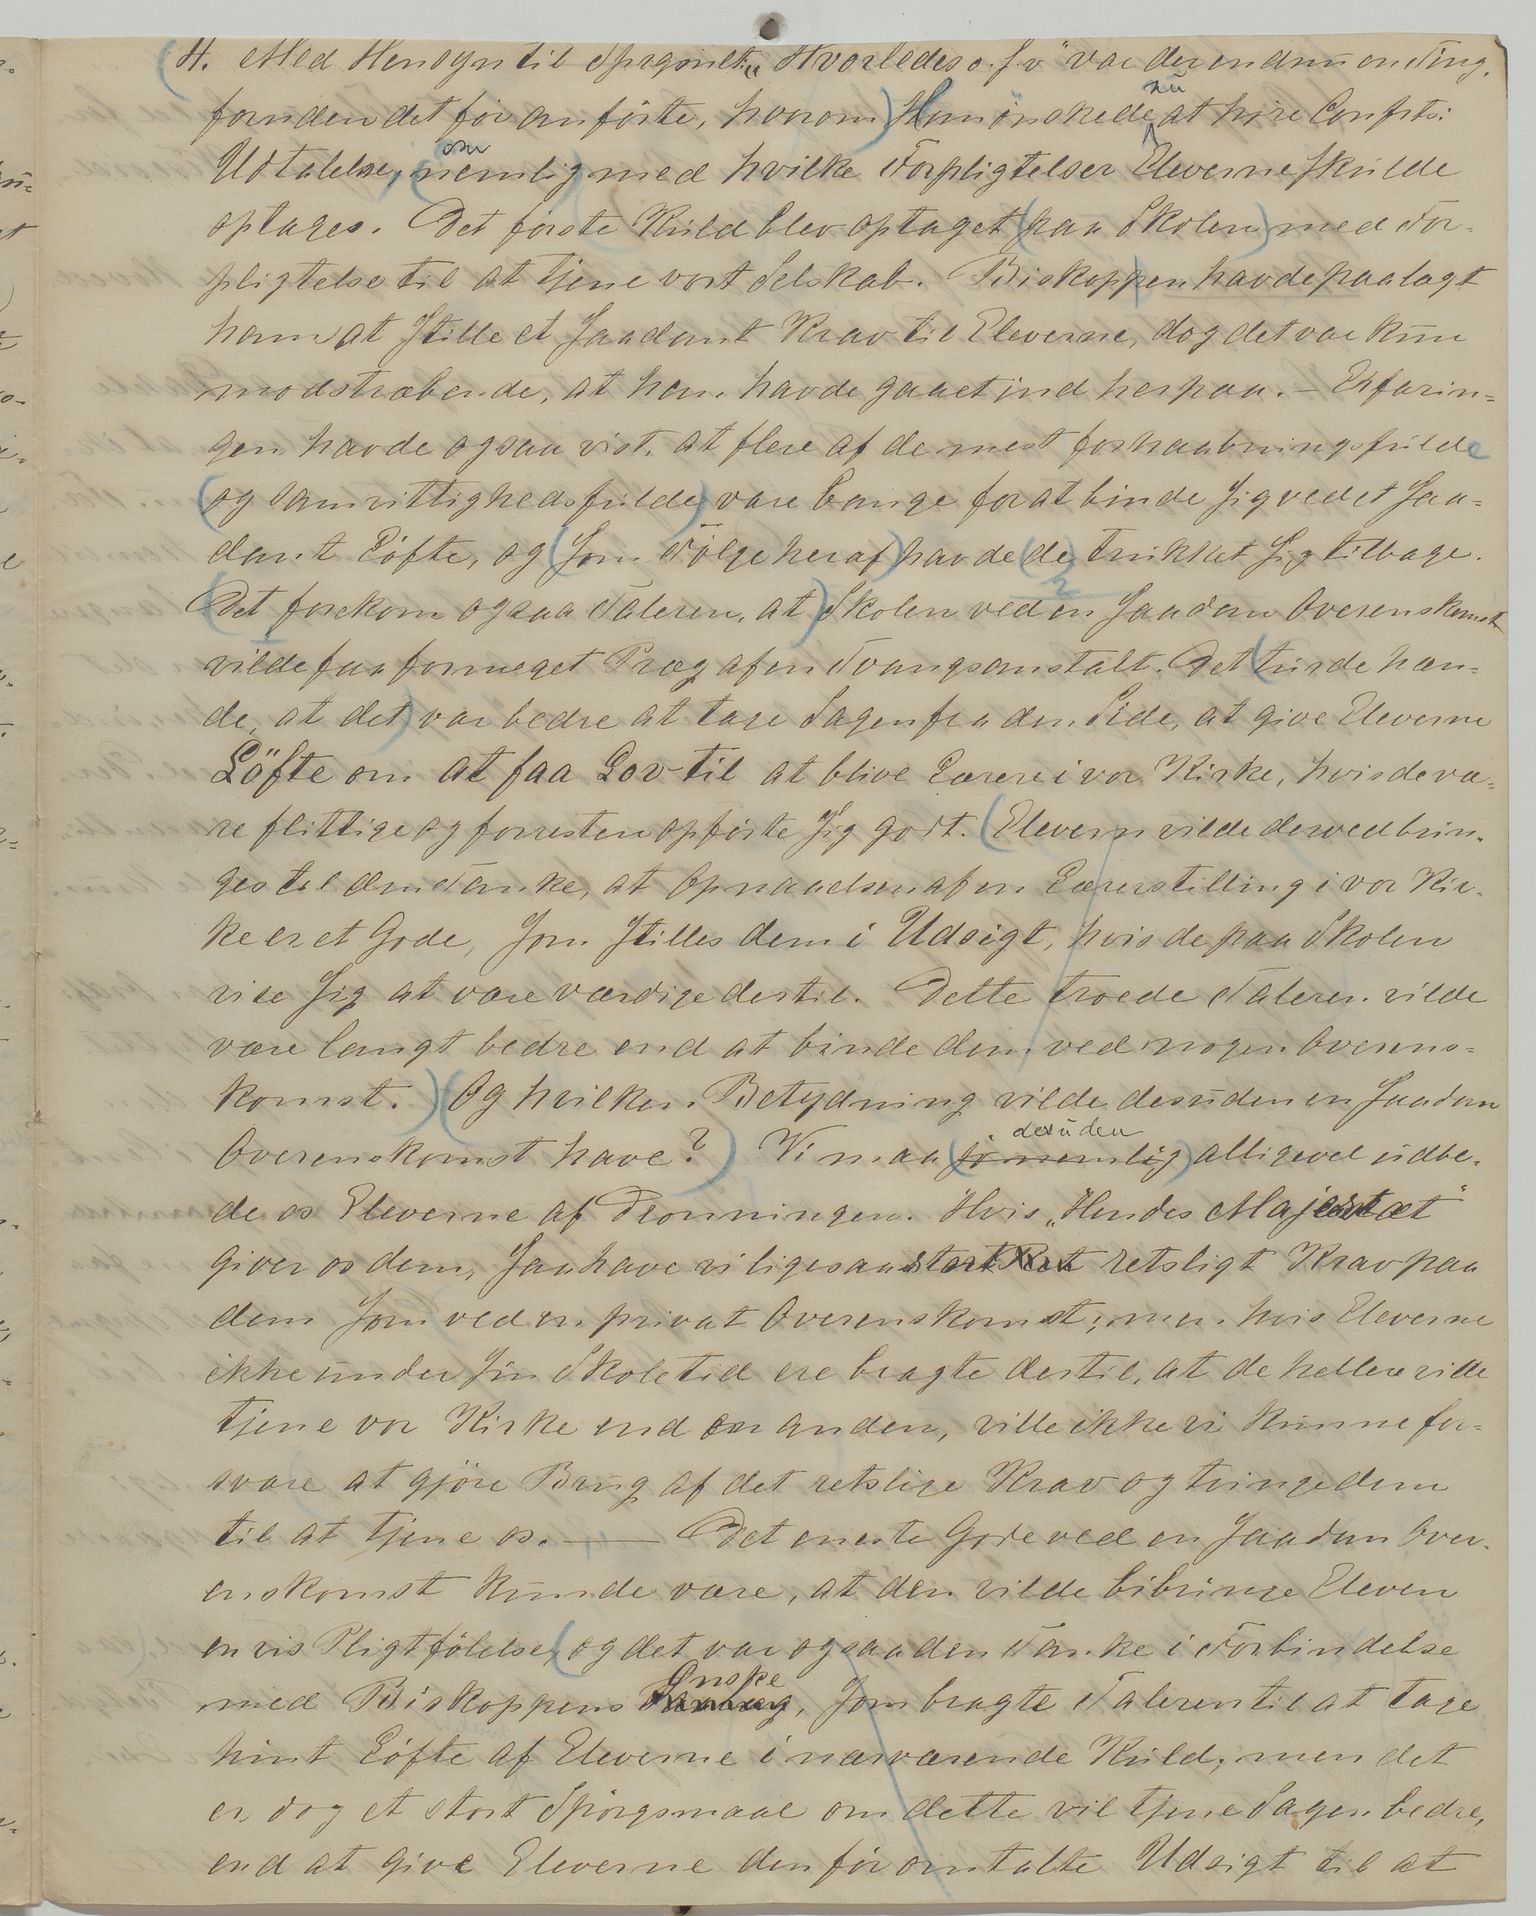 4. Med Hensyn til Sprgsmlet: „Hvorledes o.s.v" var der endnu en Ting,
foruden det før anførte, hvorom) Han ønskede nu at høre Confrts:
Udtalelse, om (nemlig) med hvilke Forpligtelser Eleverne skulde
optages. Det første Kuld blev optaget (paa Skolen) med For-
pligtelse til at tjene vort Selskab. Biskoppen havde paalagt
ham at stille et saadant Krav til Eleverne, dog det var kun
modstræbende, at han havde gaaet ind herpaa. — Erfarin-
gen havde ogsaa vist, at flere af de mest forhaabningsfulde
(og samvittighedsfulde) vare bange for at binde sig ved et saa-
dant Löfte, og (som Fölge heraf) havde (de) trukket sig tilbage.
(Det forekom ogsaa Taleren, at) Skolen ved en saadan Overenskomst
vilde faa formeget Præg af en Tvangsanstalt. Det (turde hæn-
de, at det) var bedre at tage Sagen fra den Side, at give Eleverne
Löfte om at faa Lov til at blive Lærere i vor Kirke, hvis de va-
re flittige og forresten opførte sig godt. (Eleverne vilde derved brin-
ges til den Tanke, at Opnaaelsen af en Lærerstilling i vor Kir-
ke er et Gode, som stilles dem i Udsigt, hvis de paa Skolen
vise sig at være værdige dertil. Dette troede Taleren vilde
være langt bedre end at binde dem ved nogen Overens-
komst.) (Og hvilken Betydning vilde desuden en saadan
Overenskomst have?) Vi maa (jo nemlig) desuden alligevel udbe-
de os Eleverne af Dronningen. Hvis „Hendes Majestæt"
giver os dem, saa have vi ligesaa stort retsligt Krav paa
dem som ved en privat Overenskomst; men hvis Eleverne
ikke under sin Skoletid ere bragte dertil, at de hellere ville
tjene vor Kirke end en anden, ville ikke vi kunne for-
svare at gjöre Brug af det retslige Krav og tvinge dem
til at tjene os. — Det eneste Gode ved en saadan Over-
enskomst kunde være, at den vilde bibringe Eleven
en vis Pligtfölelse, (og det var ogsaa den Tanke i Forbindelse
med Biskoppens Ønske, som bragte Taleren til at tage
hint Löfte af Eleverne i nærværende Kuld; men det
er dog et stort Spörgsmaal om dette vil tjene Sagen bedre,
end at give Eleverne den før omtalte Udsigt til at